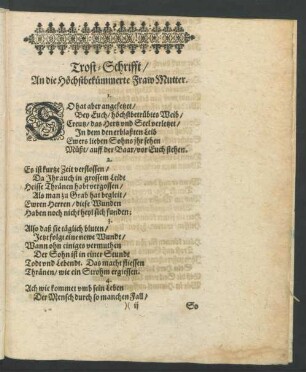 Trost-Schrifft/
An die Höchstbekümmerte Fraw Mutter.
1.
SO hat aber angesetzet/
Bey Euch/ höchstbetrübtes Weib/
Creutz/ das Hertz vnd Seel verletzet/
In dem den erblasten Leib
Ewers lieben Sohns ihr sehen
Müßt/ auff der Baar/ vor Euch stehen.
2.
Es ist kurtze Zeit verflossen/
Da Ihr auch in grossem Leide
Heisse Thränen habt vergossen/
Als man zu Grab hat begleit/
Ewren Herren/ diese Wunden
Haben noch nicht Heyl sich funden;
3.
Also daß sie täglich bluten/
Jetzt folgt eine newe Wundt/
Wann ohn einiges vermuthen
Der Sohn ist in einer Stundt
Todt vnd Lebendt. Das macht fliessen
Thränen/ wie ein Strohm ergiessen.
4.
Ach wie kommet vmb sein Leben
Der Mensch durch so manchen Fall/
)( ij
So